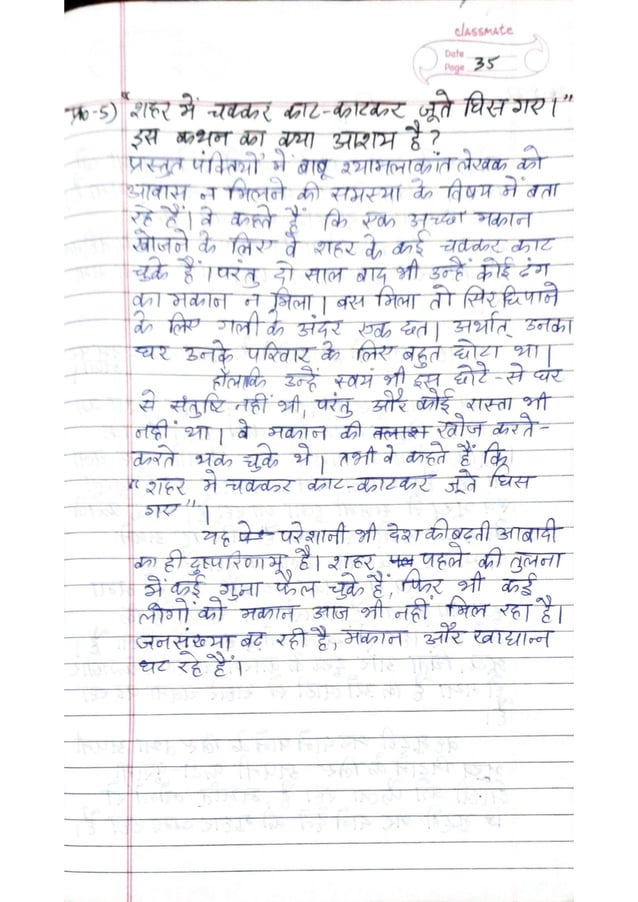 classmate
Date
Page 35
प्र०-5) "शहर में चक्कर काट-काटकर जूते घिस गए।"
इस कथन का क्या आशय है?
प्रस्तुत पंक्तियों में बाबू श्यामलाकांत लेखक को
आवास न मिलने की समस्या के विषय में बता
रहे हैं। वे कहते हैं कि एक अच्छा मकान
खोजने के लिए वे शहर के कई चक्कर काट
चुके हैं। परंतु दो साल बाद भी उन्हें कोई ढंग
का मकान न मिला। बस मिला तो सिर छिपाने
के लिए गली के अंदर एक छत। अर्थात् उनका
घर उनके परिवार के लिए बहुत छोटा था।
हालाकि उन्हें स्वयं भी इस छोटे-से घर
से संतुष्टि नहीं थी, परंतु और कोई रास्ता भी
नहीं था। वे मकान की तलाश खोज करते-
करते थक चुके थे। तभी वे कहते हैं कि
"शहर में चक्कर काट-काटकर जूते घिस
गए"।
यह परेशानी भी देश की बढ़ती आबादी
का ही दुष्परिणाम है। शहर पहले की तुलना
में कई गुना फैल चुके हैं, फिर भी कई
लोगों को मकान आज भी नहीं मिल रहा है।
जनसंख्या बढ़ रही है, मकान और खाद्यान्न
घट रहे हैं।